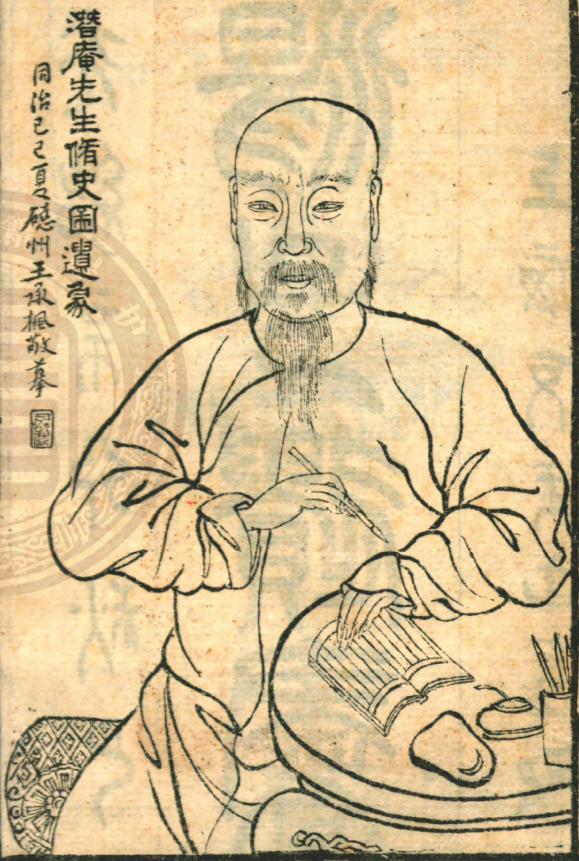 潛庵先生脩史圖遺象
同治己巳夏磁州王承楓敬摹